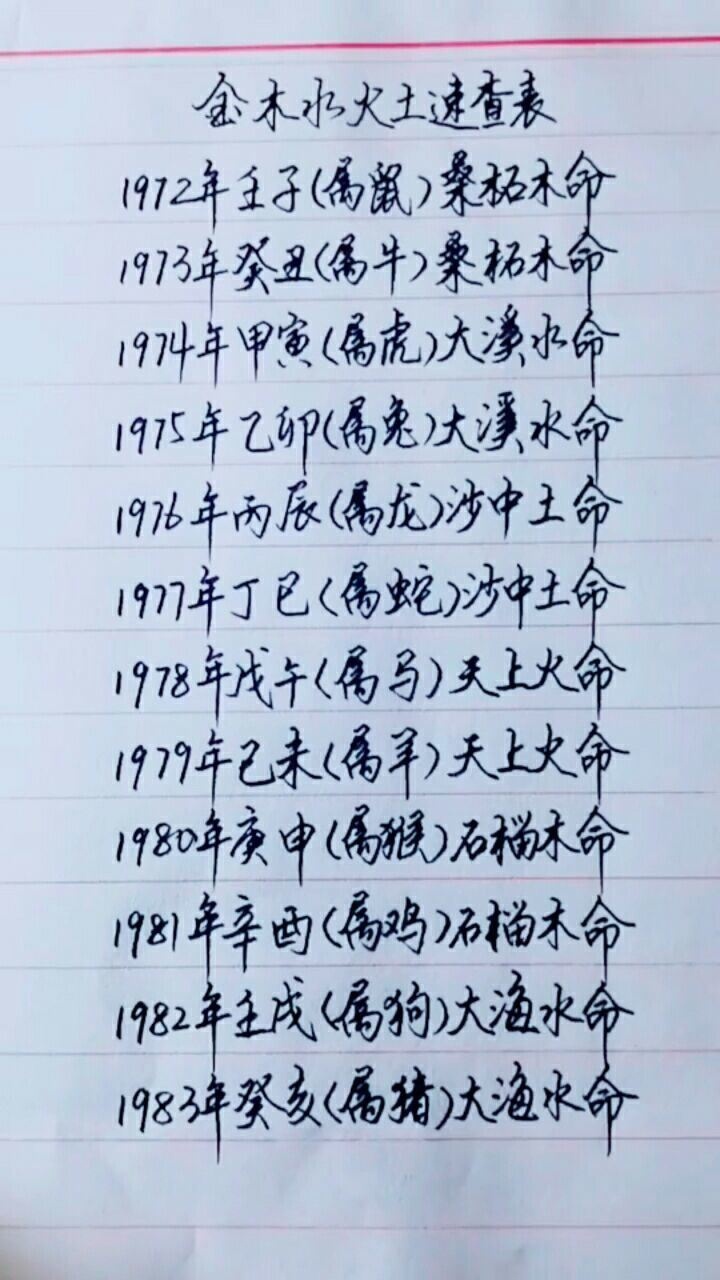 金木水火土速查表
1972年壬子(属鼠)桑柘木命
1973年癸丑(属牛)桑柘木命
1974年甲寅(属虎)大溪水命
1975年乙卯(属兔)大溪水命
1976年丙辰(属龙)沙中土命
1977年丁巳(属蛇)沙中土命
1978年戊午(属马)天上火命
1979年己未(属羊)天上火命
1980年庚申(属猴)石榴木命
1981年辛酉(属鸡)石榴木命
1982年壬戌(属狗)大海水命
1983年癸亥(属猪)大海水命